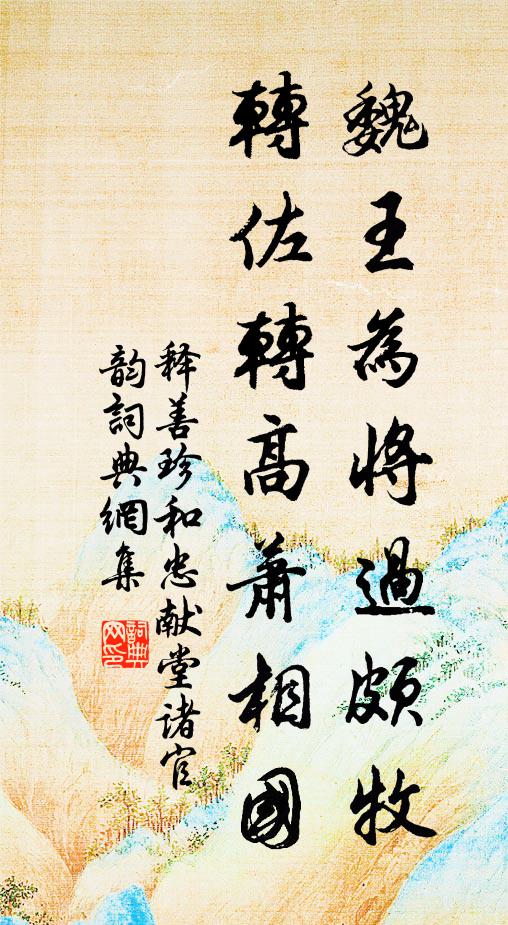 魏王為將過頗牧
轉佐轉高蕭相國
释善珍和忠献堂诸官
韵詞典網集